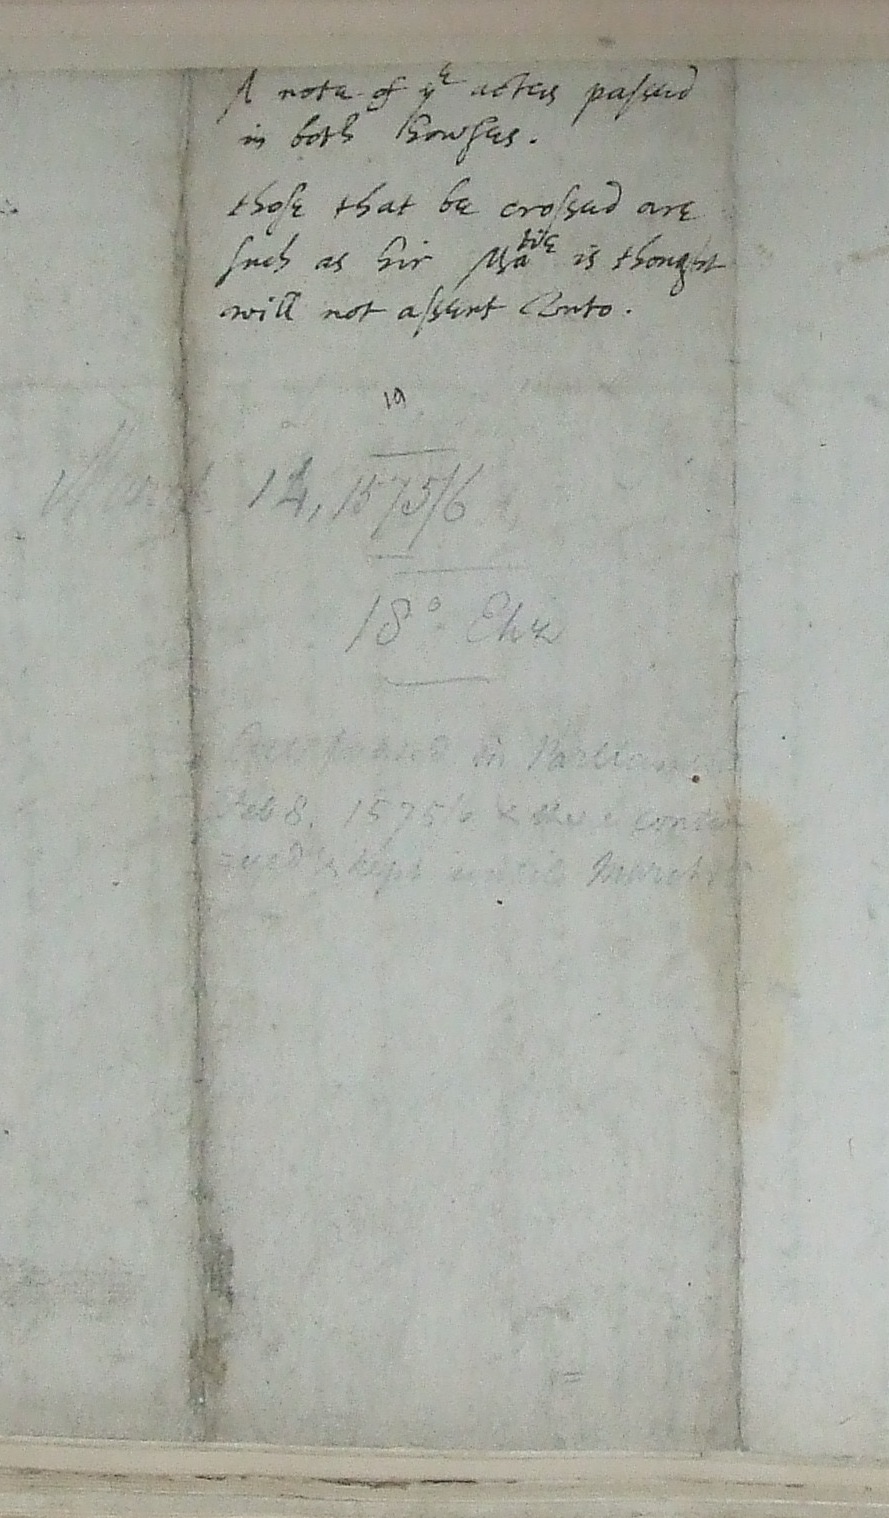 A note of yᵉ actes passed
in both howses.
those that be crossed are
such as hir Maᵗⁱᵉ is thought
will not assent vnto.
19
March 14, 1575/6
18° Eliz
in Parliam
Feb 8. 1575/6 & contin
=ued & kept until March